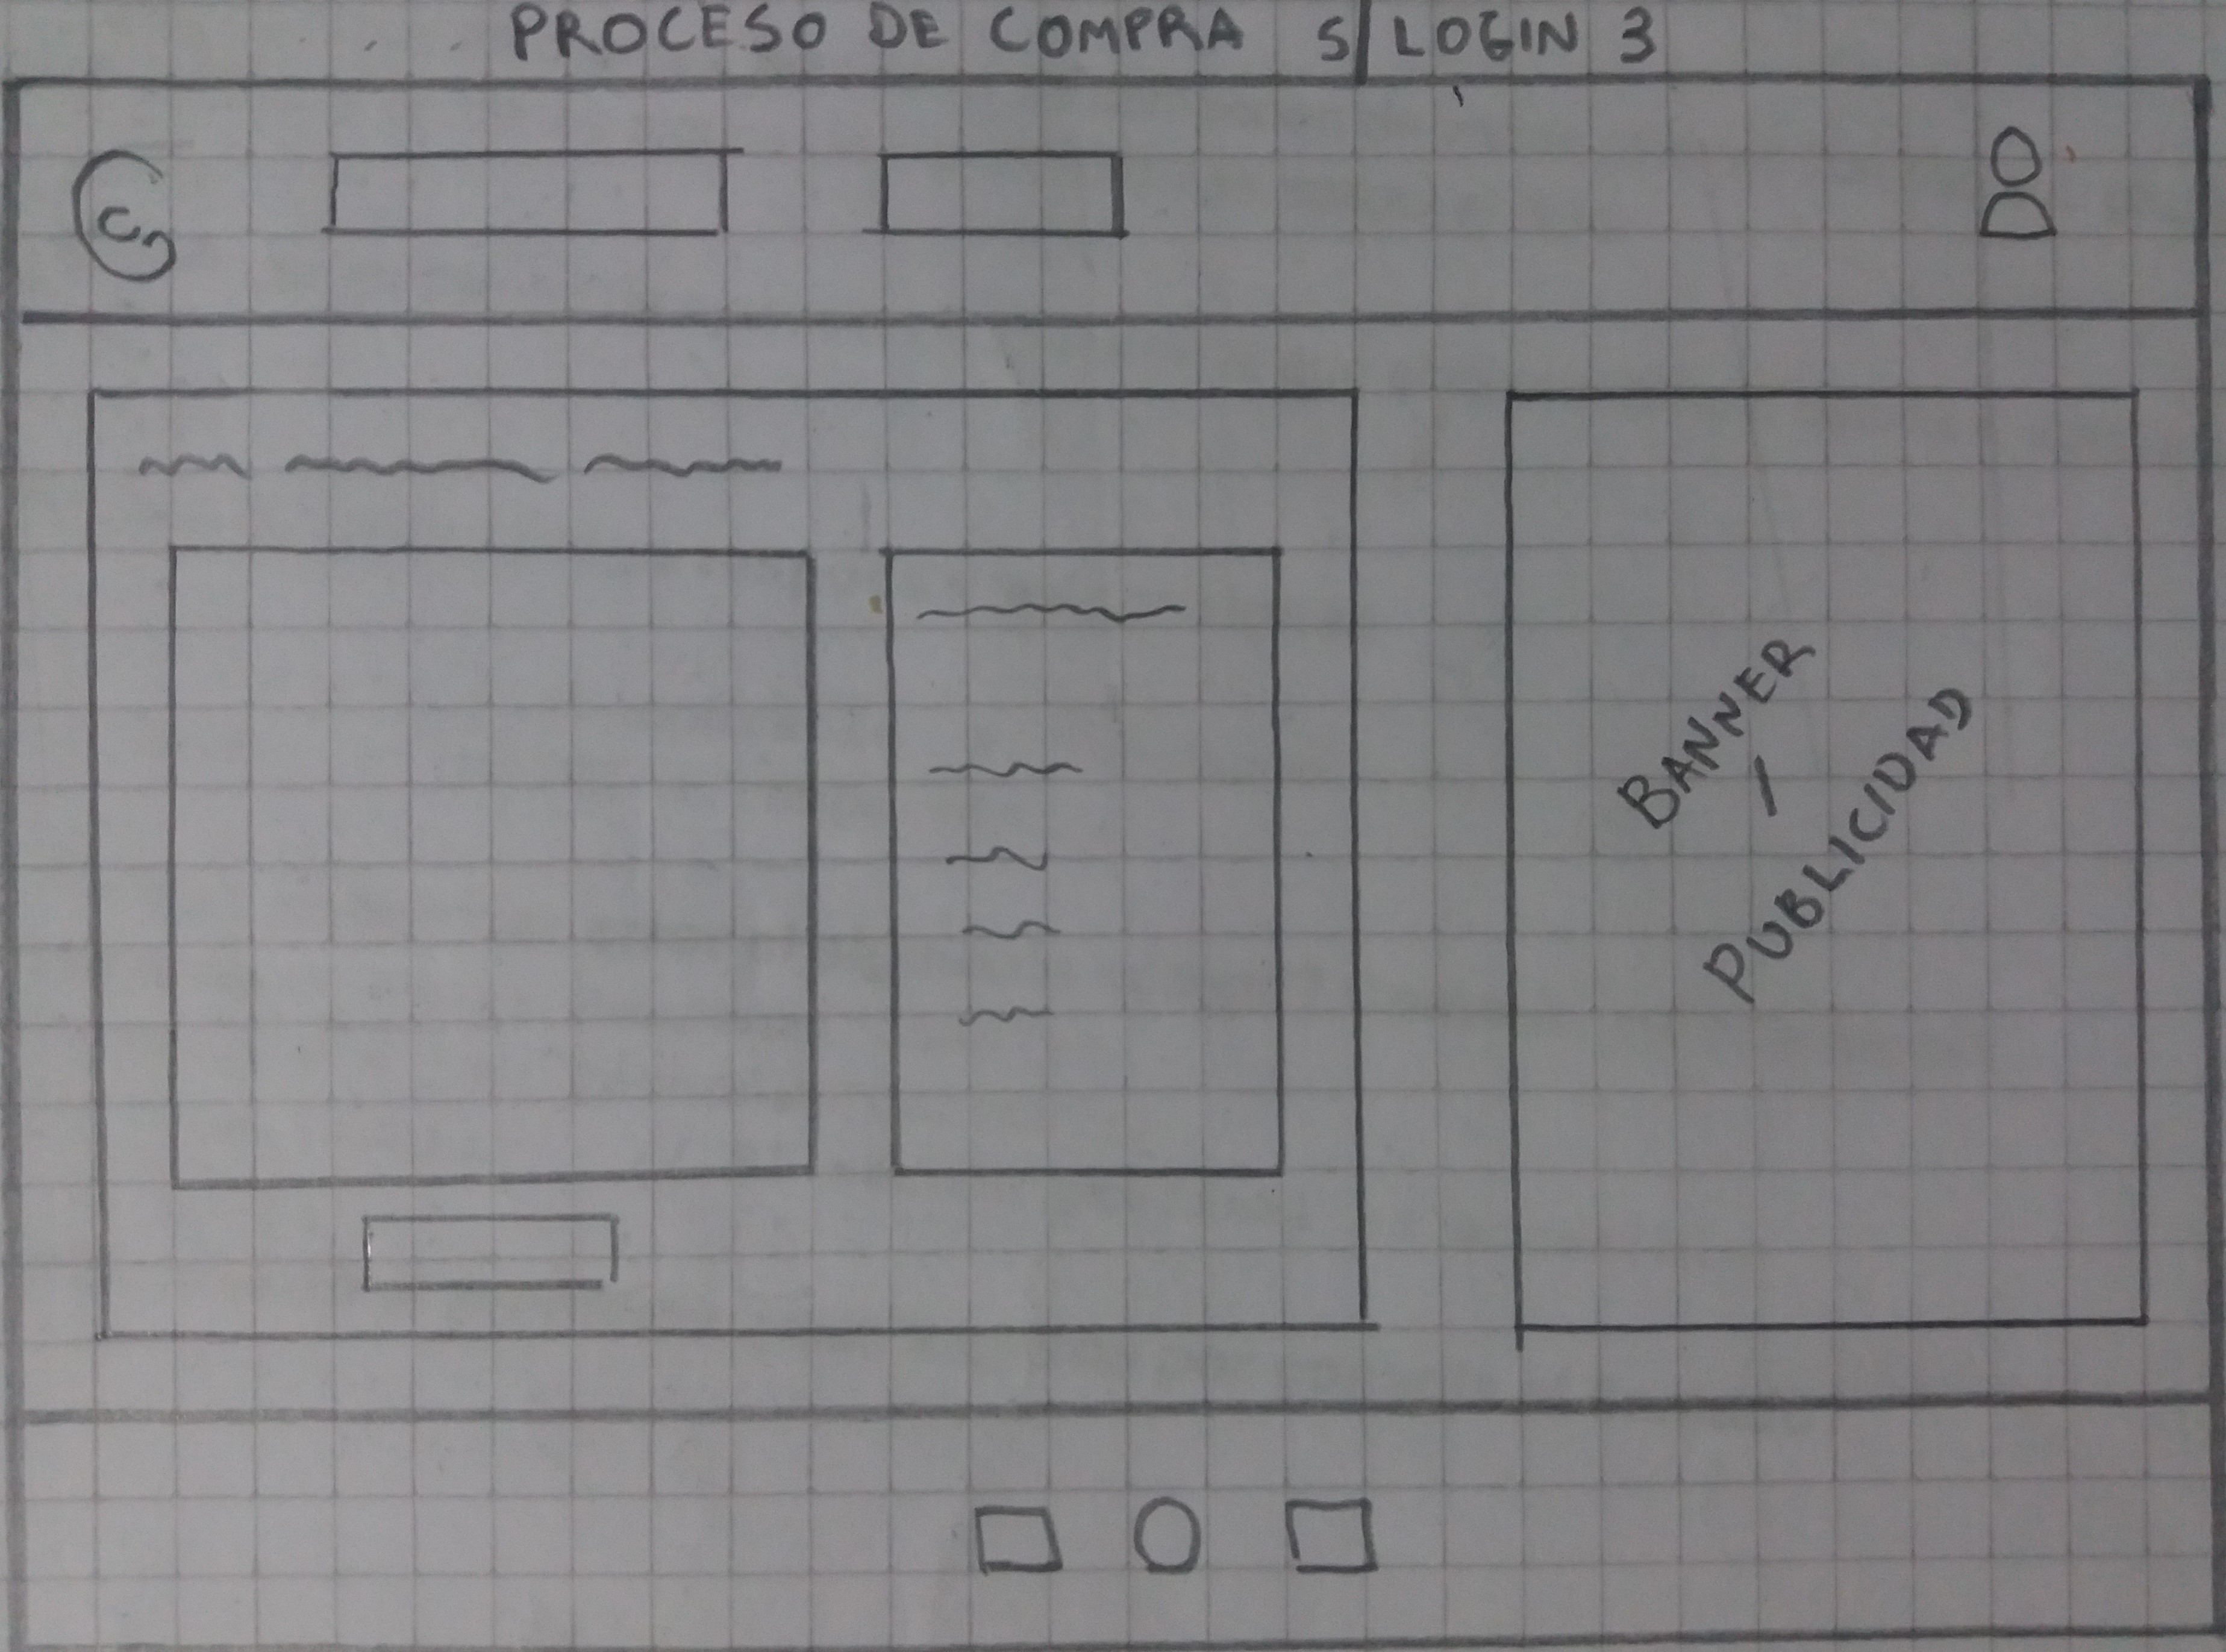 PROCESO DE COMPRA S/LOGIN 3
C
BANNER
/
PUBLICIDAD